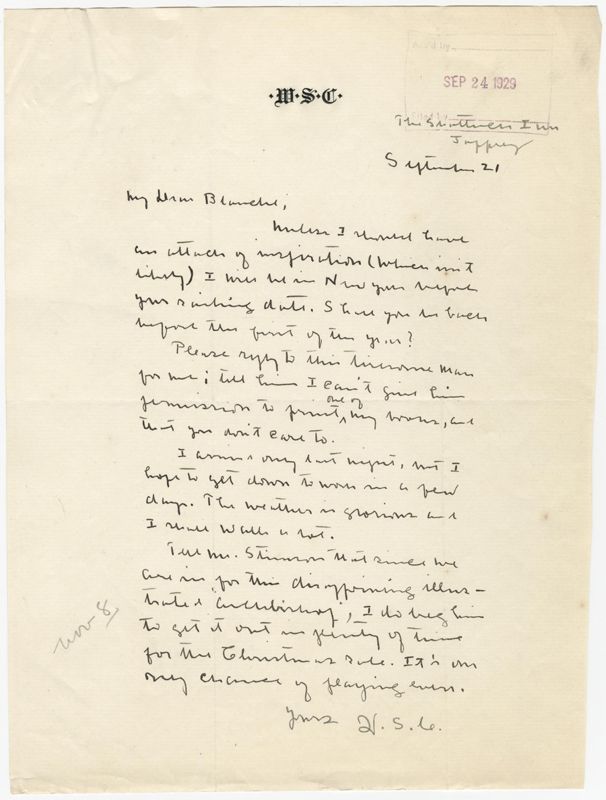 ·W·S·C·
SEP 24 1929
The Shattuck Inn
Jaffrey
September 21
My Dear Blanche;
Unless I should have
an attack of inspiration (which isn't
likely) I will be in New York before
your sailing date. Shall you be back
before the first of the year?
Please reply to this tiresome man
for me; tell him I can't give him
permission to print one of my books, and
that you don't care to.
I arrived only last night, but I
hope to get down to work in a few
days. The weather is glorious and
I shall walk a lot.
Tell Mr. Stimson that since we
are in for this disappointing illus-
trated 'Archbishop', I do beg him
to get it out in plenty of time
for the Christmas sale. It's our
only chance of playing even.
Yours W. S. C.
Nov 8